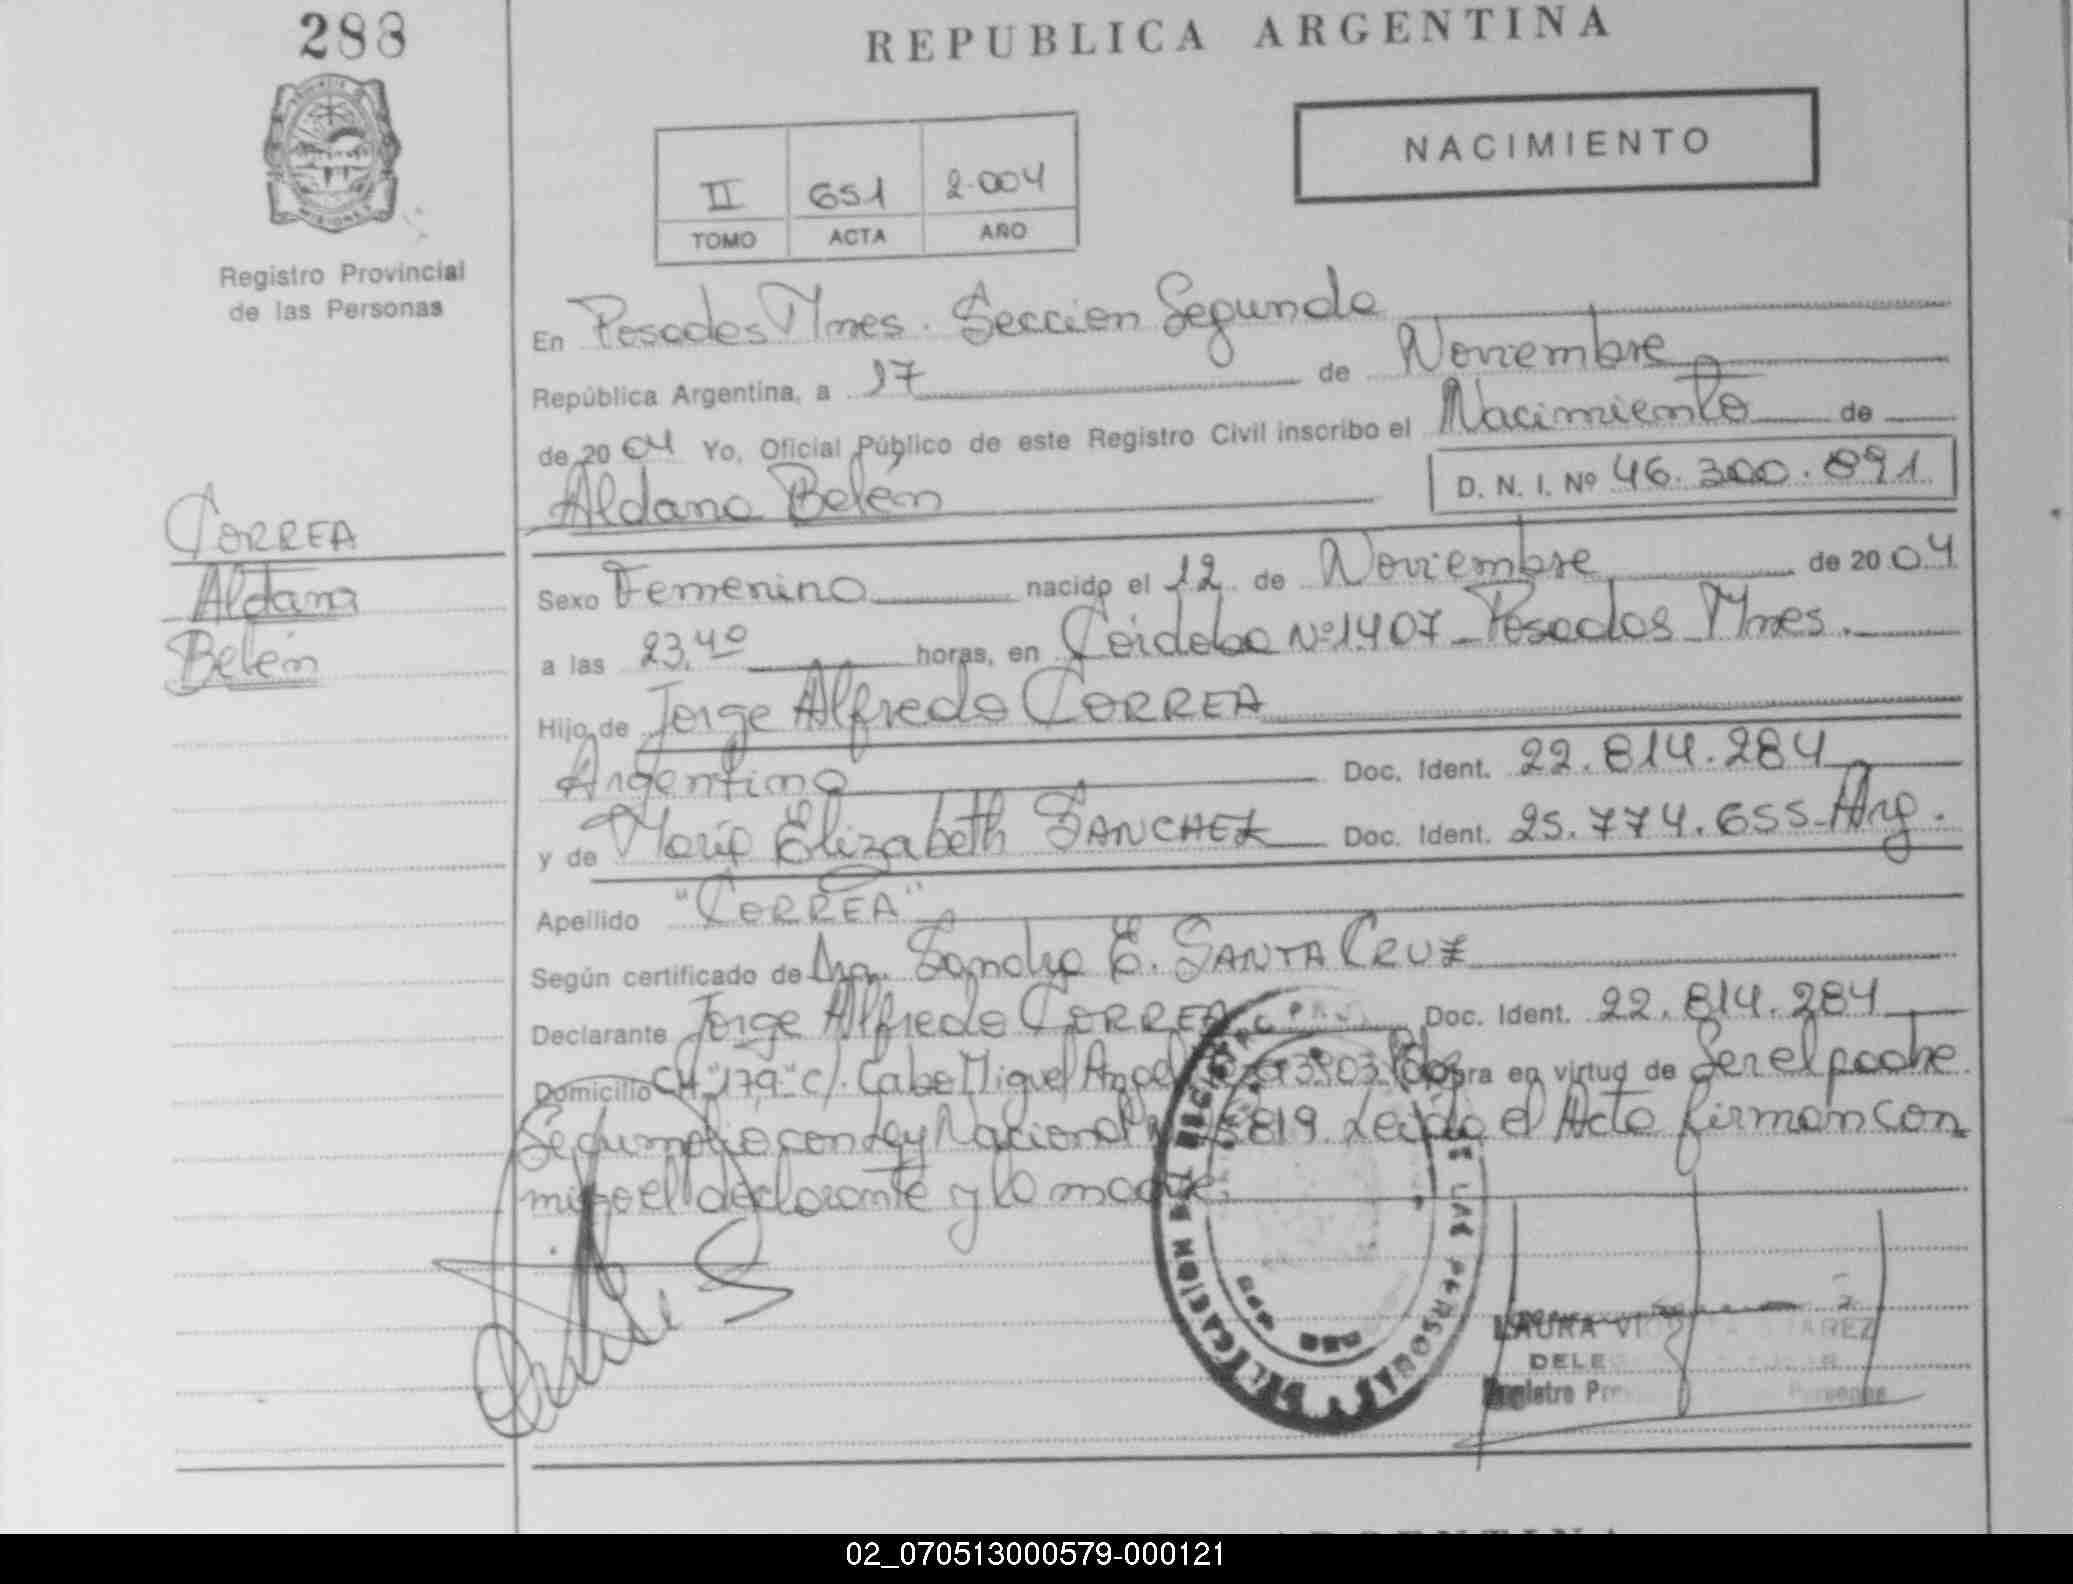 288
REPUBLICA ARGENTINA
NACIMIENTO
II 651 2.004
TOMO ACTA AÑO
Registro Provincial
de las Personas
En Posadas Mnes. Sección Segunda
República Argentina, a 17 de Noviembre
de 2004 Yo, Oficial Público de este Registro Civil inscribo el Nacimiento de
Aldana Belén D. N. I. Nº 46.300.891
CORREA
Aldana
Belén
Sexo Femenino nacido el 12 de Noviembre de 2004
a las 23,40 horas, en Córdoba Nº 1.407 - Posadas Mnes.
Hijo de Jorge Alfredo CORREA
Argentino Doc. Ident. 22.814.284
y de María Elizabeth SANCHEZ Doc. Ident. 25.774.655 - Arg.
Apellido "CORREA"
Según certificado de Sandra E. SANTA CRUZ
Declarante Jorge Alfredo CORREA Doc. Ident. 22.814.284
Domicilio CH "179" c/. Cabo Miguel Angel en virtud de Ser el padre.
Se cumplió con Ley Nacional Leída el Acta firman con
migo el declarante y la madre.
LAURA
DELE
Registro
Personas
DELEGACION
DE LAS PERSONAS
02_070513000579-000121